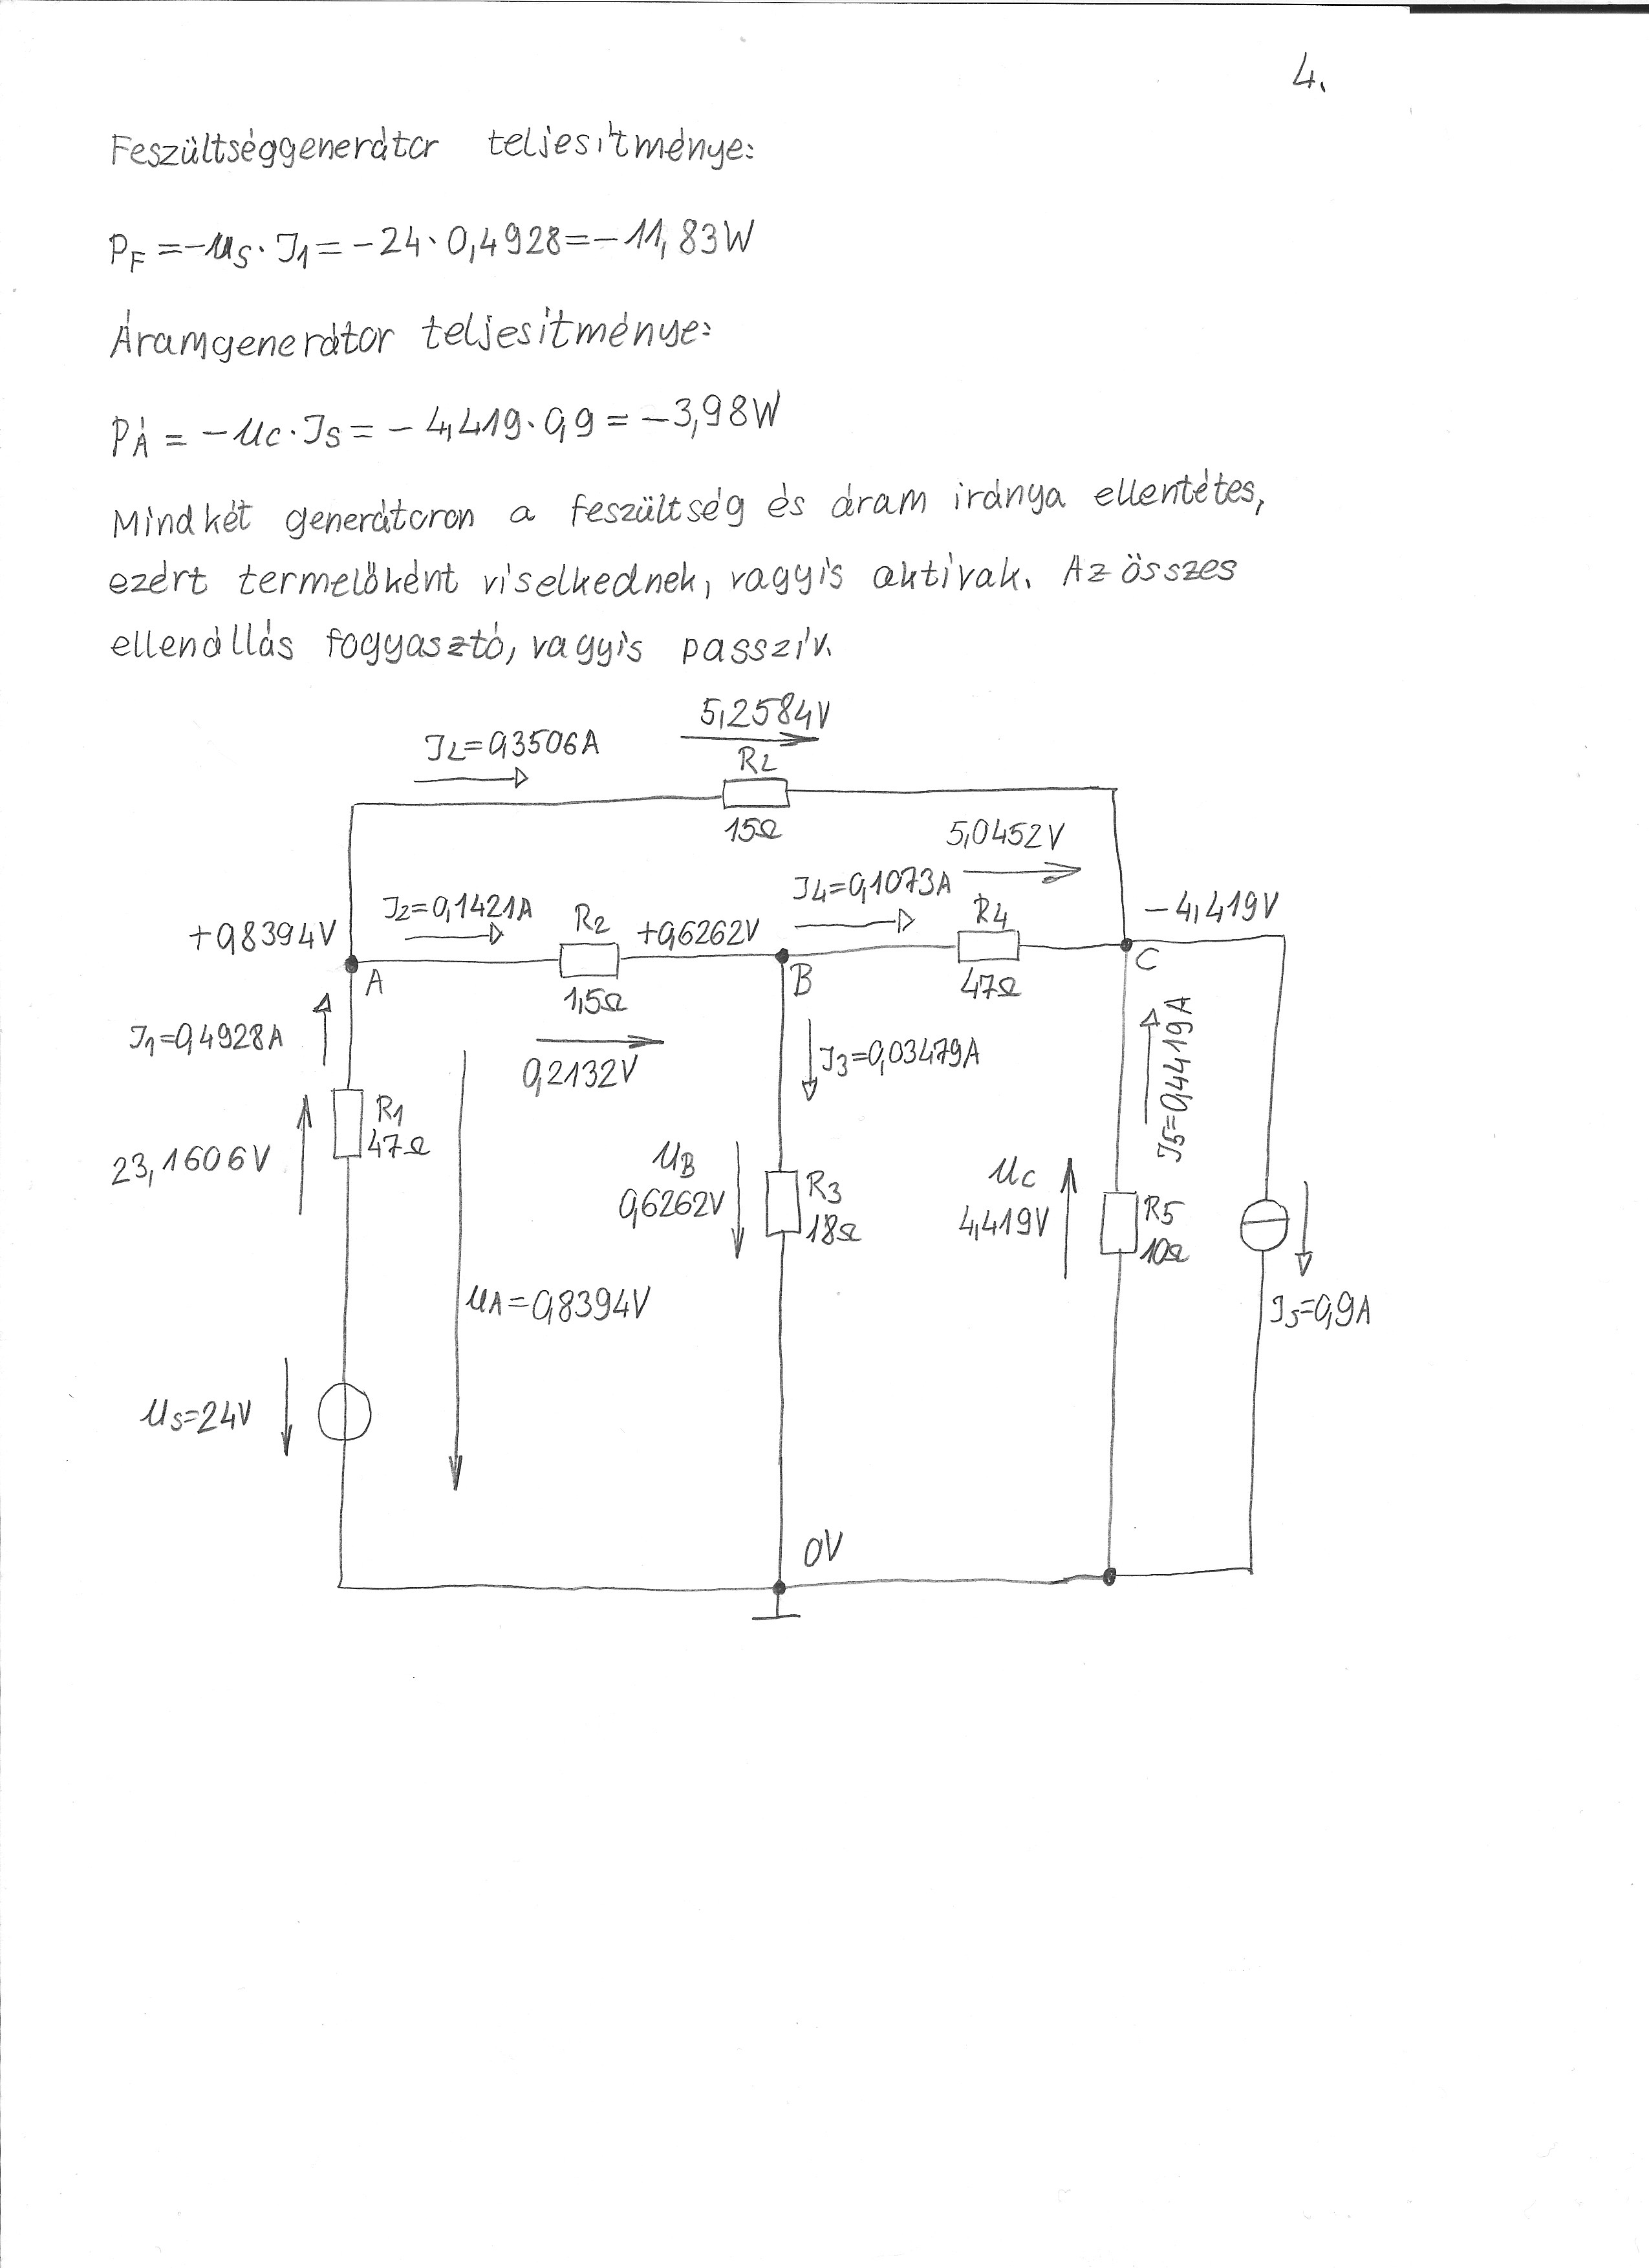 4.
Feszültséggenerátor teljesítménye:
PF=-US·I1=-24·0,4928=-11,83W
Áramgenerátor teljesítménye:
PÁ=-UC·IS=-4,419·0,9=-3,98W
Mindkét generátoron a feszültség és áram iránya ellentétes,
ezért termelőként viselkednek, vagyis aktívak. Az összes
ellenállás fogyasztó, vagyis passzív.
5,2584V
IL=0,3506A
RL
15Ω
5,0452V
I4=0,1073A
-4,419V
I2=0,1421A
R2
+0,6262V
R4
+0,8394V
A
B
C
1,5Ω
47Ω
I1=0,4928A
0,2132V
I3=0,03479A
I5=0,4419A
R1
47Ω
23,1606V
UB
0,6262V
R3
18Ω
UC
4,419V
R5
10Ω
UA=0,8394V
IS=0,9A
US=24V
0V